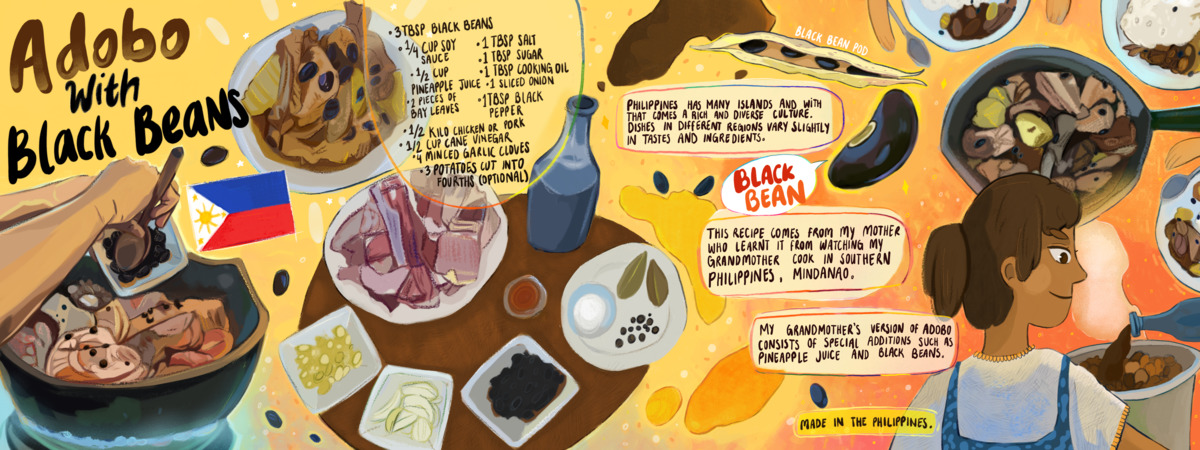 Adobo
With
Black Beans
• 3 TBSP BLACK BEANS
• 1/4 CUP SOY
SAUCE
• 1/2 CUP
PINEAPPLE JUICE
• 2 PIECES OF
BAY LEAVES
• 1 TBSP SALT
• 1 TBSP SUGAR
• 1 TBSP COOKING OIL
• 1 SLICED ONION
• 1 TBSP BLACK
PEPPER
• 1/2 KILO CHICKEN OR PORK
• 1/2 CUP CANE VINEGAR
• 4 MINCED GARLIC CLOVES
• 3 POTATOES CUT INTO
FOURTHS (OPTIONAL)
BLACK BEAN POD
PHILIPPINES HAS MANY ISLANDS AND WITH
THAT COMES A RICH AND DIVERSE CULTURE.
DISHES IN DIFFERENT REGIONS VARY SLIGHTLY
IN TASTES AND INGREDIENTS.
BLACK
BEAN
THIS RECIPE COMES FROM MY MOTHER
WHO LEARNT IT FROM WATCHING MY
GRANDMOTHER COOK IN SOUTHERN
PHILIPPINES, MINDANAO.
MY GRANDMOTHER'S VERSION OF ADOBO
CONSISTS OF SPECIAL ADDITIONS SUCH AS
PINEAPPLE JUICE AND BLACK BEANS.
MADE IN THE PHILIPPINES.